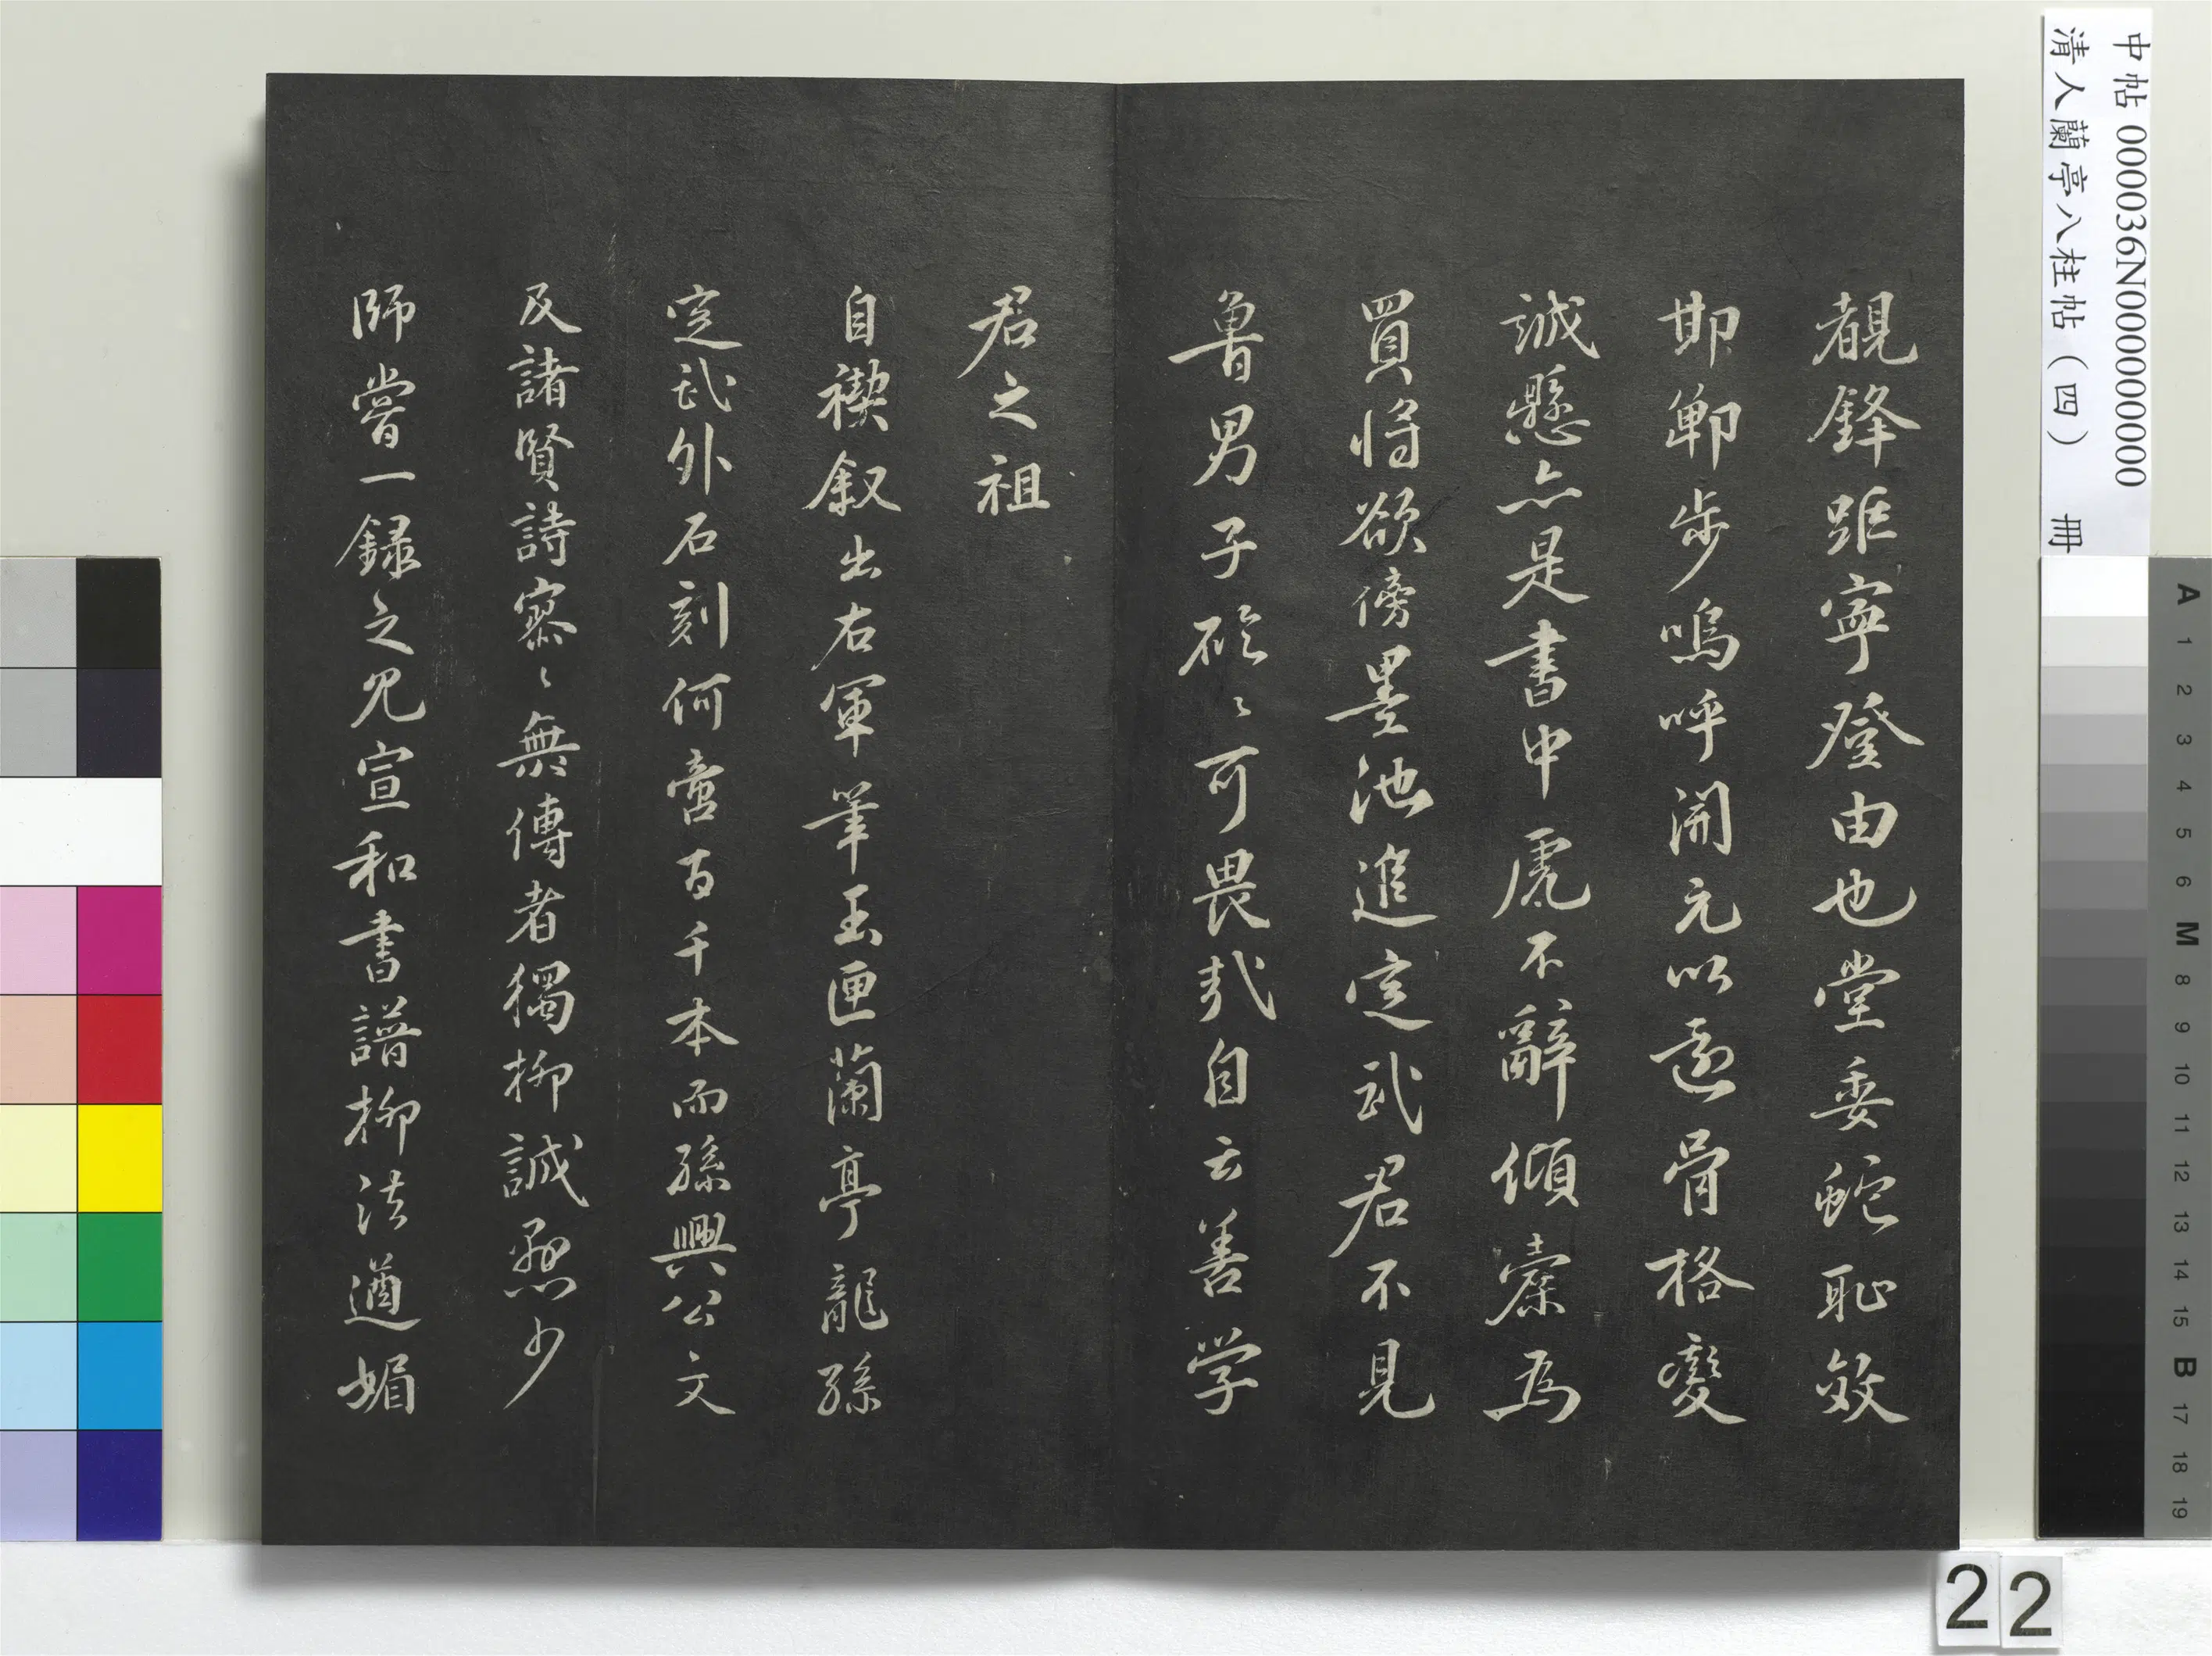 覩鋒距寧登由也堂委蛇恥效
邯鄲步嗚呼開元以還骨格變
誠懸亦是書中虎不辭傾橐為
買將欲傍墨池進定武君不見
魯男子硁〻可畏哉自云善学
君之祖
自禊叙出右軍筆玉匣蘭亭龍孫
定武外石刻何啻百千本而孫興公文
及諸賢詩寥〻無傳者獨柳誠懸少
師嘗一録之見宣和書譜柳法遒媚
中帖 000036N000000000
清人蘭亭八柱帖（四） 冊
A 1 2 3 4 5 6 M 8 9 10 11 12 13 14 15 B 17 18 19
22